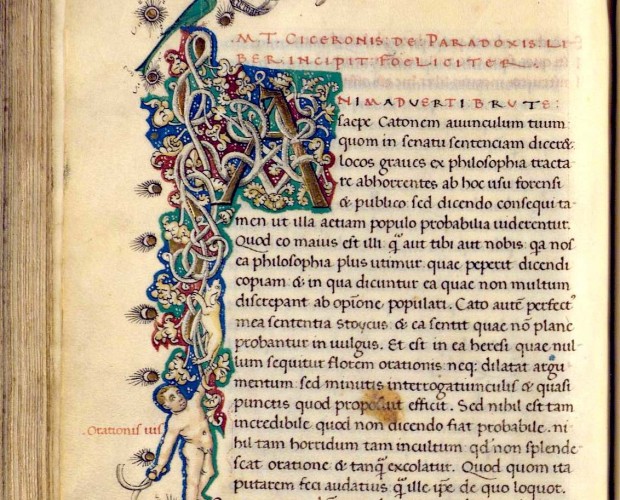 M. T. CICERONIS DE PARADOXIS LI
BER INCIPIT FOELICITER
ANIMADVERTI BRUTE:
saepe Catonem avunculum tuum
quom in senatu sentenciam dicere&
locos graues ex philosophia tracta
re abhorrentes ab hoc usu forensi
& publico sed dicendo consequi ta-
men ut illa etiam populo probabilia uiderentur.
Quod eo maius est illi q̃ aut tibi aut nobis: qa nos
ea philosophia plus utimur quae peperit dicendi
copiam & in qua dicuntur ea quae non multum
discrepant ab opĩone populari. Cato autẽ perfect᾽
mea sententia stoycus & ea sentit quae nõ plane
probantur in uulgus. Et est in ea heresi quae nul
lum sequitur florem orationis neq; dilatat argu
mentum sed minutis interrogatiunculis & quasi
punctis quod proposuit efficit. Sed nihil est tam
incredibile quod non dicendo fiat probabile. ni
hil tam horridum tam incultum qd non splende
scat oratione & tanq̃ excolatur. Quod quom ita
putarem feci audatius q̃ ille ip̃e de quo loquor.
Orationis uis